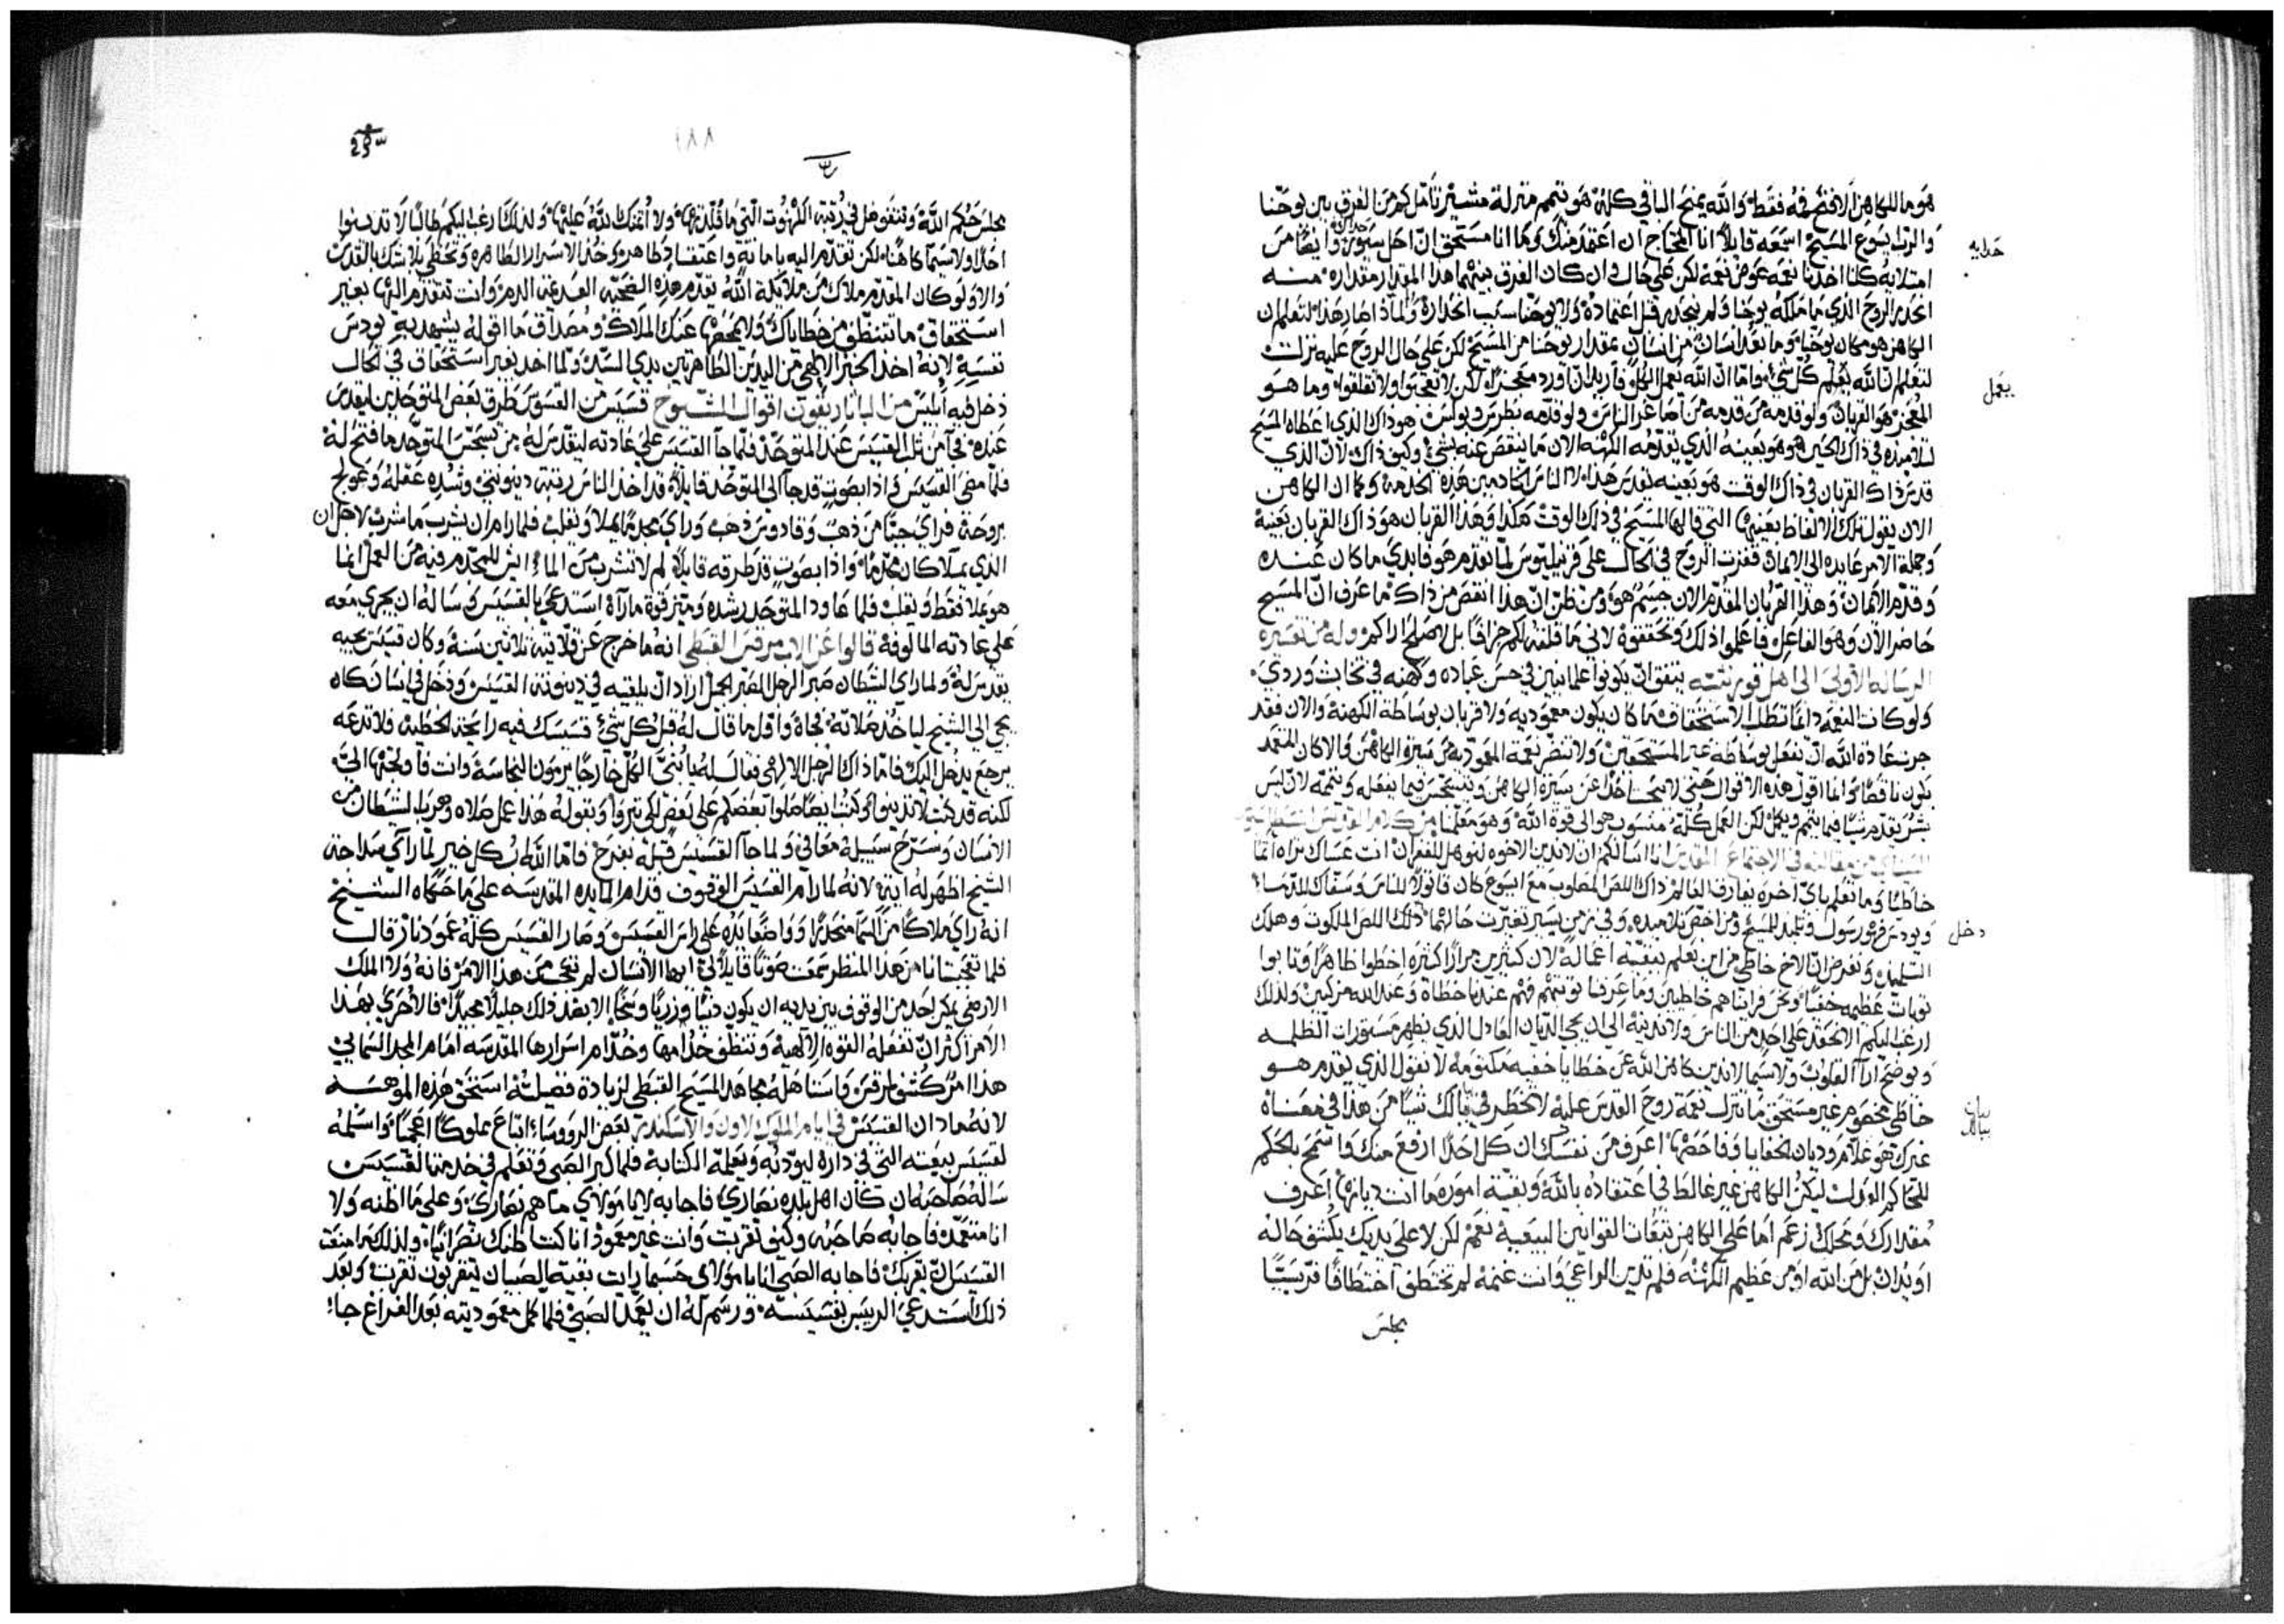 هو ما للكاهن الا فتح فمه فقط والله يمنح الباقي كله هو يتمم منزلة مشير تامل كم من الفرق بين يوحنا
والرب يسوع المسيح اسمعه قايلا انا المحتاج ان اعتمد منك وما انا مستحق ان احل سيور حدايه وايضا من
حدايه
امتلايه كلنا اخذنا نعمه عوض نعمة لكن على حال وان كان الفرق بينهما هذا المقدار مقداره منه
انحدر الروح الذي ما ملكه يوحنا ولم ينحدر قبل اعتماده ولا يوحنا سبب انحداره ولماذا صار هذا لتعلم ان
الكاهن هو مكان يوحنا وما بعد انسان من انسان بمقدار يوحنا من المسيح لكن على حال الروح عليه نزلت
لتعلم ان الله يعلم كل شي واما ان الله يعمل الكل فاريد ان اورد معجزا لكن لا تعجبوا ولا تقلقوا وما هو
يعمل
المعجز هو القربان ولو قدمه من قدمه من اصاغر الناس ولو قدمه بطرس وبولس هو ذاك الذي اعطاه المسيح
تلاميذه في ذاك الحين هو هو بعينه الذي يقدمه الكهنه الان ما ينقص عنه بشي وكيف ذاك لان الذي
قدس ذاك القربان في ذاك الوقت هو بعينه يقدس هذا لا الناس الخادمين هذه الخدمة وكما ان الكاهن
الان يقول تلك الالفاظ بعينها التي قالها المسيح في ذلك الوقت هكذا وهذا القربان هو ذاك القربان بعينه
وجملة الامر عايده الى الايمان فقفزت الروح في الحال على قرنيليوس لما تقدم هو فابدى ما كان عنده
وقدم الايمان وهذا القربان المقدم الان جسم هو ومن ظن ان هذا انقص من ذاك ما عرف ان المسيح
حاضر الان وهو الفاعل فاعلموا ذلك وتحققوه لاني ما قلته لكم جزافا بل لاصلح اراكم وله من تفسيره
الرسالة الاولى الى اهل قورنثيه يتفق ان يكونوا علمانيين في حسن عباده وكهنه في تخابث وردي
ولو كانت النعمه دايما تطلب الاستحقاق لما كان يكون معموديه ولا قربان بوساطة الكهنة والان فقد
جرت عادة الله ان تفعل بوساطة غير المستحقين ولا تنضر نعمة المعموديه من سيرة الكاهن والا كان المتعمد
يكون ناقصا وانما اقول هذه الاقوال حتى لا يبحث احدا عن سيرة الكاهن ويتشكك فيما يفعله ويتممه لان ليس
بشر يقدم شيا فيما يتمم ويكمل لكن العمل كله منسوب هو الى قوة الله وهو معلمنا من كلام القديس انسطاسيوس
السيناي من مقالته في الاجتماع المقدس انا اسالكم ان لا ندين الاخوه لنوهل للغفران انت عساك تراه اثما
خاطيا وما تعلم باي اخره يفارق العالم ذاك اللص المصلوب مع ايسوع كان قاتولا للناس وسفاك للدما
ويودس فهو رسول وتلميذ للمسيح ومن اخص تلاميذه وفي زمن يسير تغيرت حالهما ذلك اللص الملكوت وهلك
دخل
التلميذ ونفرض ان الاخ خاطي من اين تعلم ببقية اعماله لان كثيرين مرارا كثيره اخطوا ظاهرا وتابوا
توبات عظيمه خفيا ونحن فرايناهم خاطيين وما عرفنا توبتهم فهم عندنا خطاة وعند الله مزكيين ولذلك
ارغب اليكم الا نحقد على احد من الناس ولا ندينه الى ان يجي الديان العادل الذي يظهر مستورات الظلمه
ويوضح ارآ القلوب ولا سيما لا ندين كاهن الله عن خطايا خفيه مكتومه لا تقول الذي يقدم هو
خاطي مخصوم غير مستحق ما تنزل نعمة روح القدس عليه لا تخطر في بالك شيا من هذا في معناه
بيان
بيالك
غيرك هو علام وديان الخفايا وفاحصها اعرف من نفسك ان كل احدا ارفع منك واسمح بالحكم
للحاكم العدل ليكن الكاهن غير غالط في اعتقاده بالله وبقية اموره ما انت ديانها اعرف
مقدارك ومحلك زعم اما على الكاهن تبعات القوانين البيعيه نعم لكن لا على يديك يكشف حاله
او يدان بل من الله او من عظيم الكهنه فلم تدين الراعي وانت غنمة لم تختطف اختطافا فريسيا
مجلس
١٨٨
مجلس حكم الله وتتفوضل في رتبة الكهنوت التي ما قلدتها ولا اتمنك الله عليها ولذلك ارغب اليكم طالبا لا تدينوا
احدا ولا سيما كاهنا لكن تقدم اليه بامانة واعتقاد طاهر وخذ الاسرار الطاهره وتحظى بلا شك بالقدس
والا ولو كان المقدم ملاك من ملايكة الله يقدم هذه الضحية العديمة الدم وانت تتقدم اليها بغير
استحقاق ما تتنظف من خطاياك ولا يمحصها عنك الملاك ومصداق ما اقوله يشهد به يودس
نفسه لانه اخذ الخبز الالهي من اليدين الطاهرتين يدي السيد ولما اخذ بغير استحقاق في الحال
دخل فيه ابليس من الباناريقون اقوال الشيوخ قسيس من القسوس طرق بعض المتوحدين ليقدس
عنده فجا من ثلب القسيس عند المتوحد فلما جا القسيس على عادته ليقدس له من تسجس المتوحد ما فتح له
فلما مضى القسيس واذا بصوت قد جا الى المتوحد قايلا قد اخذ الناس رتبة دينونتي وشده عقله وعولج
بروحة فراى جبا من ذهب وقادوس ذهب وراى مجذما يملا ويقلب فلما رام ان يشرب ما شرب لاجل ان
الذي يملا كان مجذما واذا بصوت قد طرقه قايلا لم لا تشرب من الما ايش للمجذم فيه من العمل انما
هو يملا فقط ويقلب فلما عاود المتوحد رشده وميز قوة ما رآه استدعى بالقسيس وساله ان يجري معه
على عادته المالوفة قالوا عن الاب مرقس القبطي انه ما خرج عن قلايته ثلاثين سنة وكان قسيس يجيه
يقدس له ولما راى الشيطان صبر الرجل الصبر الجميل اراد ان يلقيه في دينونة القسيس ودخل في انسان كانه
يجي الى الشيخ لياخذ صلاته فجاه واول ما قال له قبل كل شي قسيسك فيه رايحة الخطية فلا تدعه
يرجع يدخل اليك فاما ذاك الرجل الالهي فقال له يا بني الكل خارجا يرمون النجاسة وانت فاولجتها الي
لكنه قد كتب لا تدينوا وكتب ايضا صلوا بعضكم على بعض لكي تبروا وبقوله هذا عمل صلاه وهرب الشيطان من
الانسان وسرح سبيله معافى ولما جا القسيس قبله بفرح فاما الله رب كل خير لما راى سلاجة
الشيخ اظهر له اية لانه لما رام القسيس الوقوف قدام المايده المقدسه على ما حكاه الشيخ
انه راى ملاكا من السما منحدرا وواضعا يده على راس القسيس وصار القسيس كله عمود نار قال
فلما تعجبت انا من هذا المنظر سمعت صوتا قايلا لي ايها الانسان لم تعجب من هذا الامر فانه ولا الملك
الارضي يمكن احد من الوقوف بين يديه ان يكون دنيا وزريا وسخا الا بعد ذلك جليلا مجيدا فالاحرى بهذا
الامر اكثر ان تفعله القوه الالهية وتنظف خدامها وخدام اسرارها المقدسه امام المجد السمايي
هذا امر كشف لمرقس واستاهله مجاهد المسيح القبطي لزيادة فضيلته استحق هذه الموهبه
لانه ما دان القسيس في ايام الملوك لاون والاسكندر بعض الرووساء ابتاع مملوكا اعجميا واسلمه
لقسيس بيعته التي في داره ليودبه ويعلمه الكتابة فلما كبر الصبي وتعلم في خدمته القسيس
ساله صاحبه ان كان اهل بلده نصارى فاجابه لا يا مولاي ما هم نصارى وعلى ما اظنه ولا
انا متعمد فاجابه صاحبه وكيف تقربت وانت غير معمود انا كنت اظنك نصرانيا ولذلك ما منعت
القسيس ان يقربك فاجابه الصبي انا يا مولاي حسبما رايت بقية الصبيان يتقربون تقربت وبعد
ذلك استدعى الرييس بقسيسه ورسم له ان يعمد الصبي فلما كمل معموديته بعد الفراغ جا